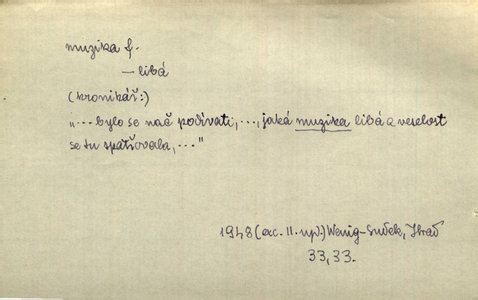 muzika f.
— libá
(kronikář:)
„... bylo se nač podívati, ..., jaká muzika libá a veselost
se tu spatřovala, ..."
1948 (exc. II. vyd.) Wenig-
33, 33.